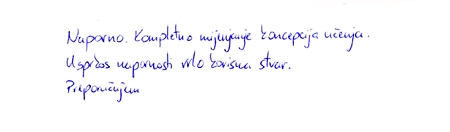 Naporno. Kompletno mijenjanje koncepcija učenja.
Usprkos napornosti vrlo korisna stvar.
Preporučujem